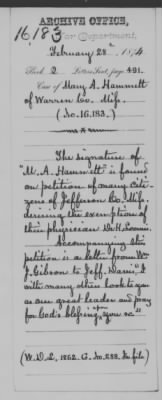 16183
ARCHIVE OFFICE,
War Department,
February 28th 1874
Book 2 Letters Sent, page 491.
Case of Mary A. Hammett
of Warren Co. Miss.
(No. 16.183.)
The signature of
"M. A. Hammett" is found
on petition of many citi-
zens of Jefferson Co. Miss
desiring the exemption of
their physician Dr H.
Accompanying this
petition is a letter from Wm
J. Gibson to Jeff. Davis, "I
with many others look to you
as our great leader and pray
for God's blessing upon you &c."
(W.D.L., 1862. G. No. 288. In file)